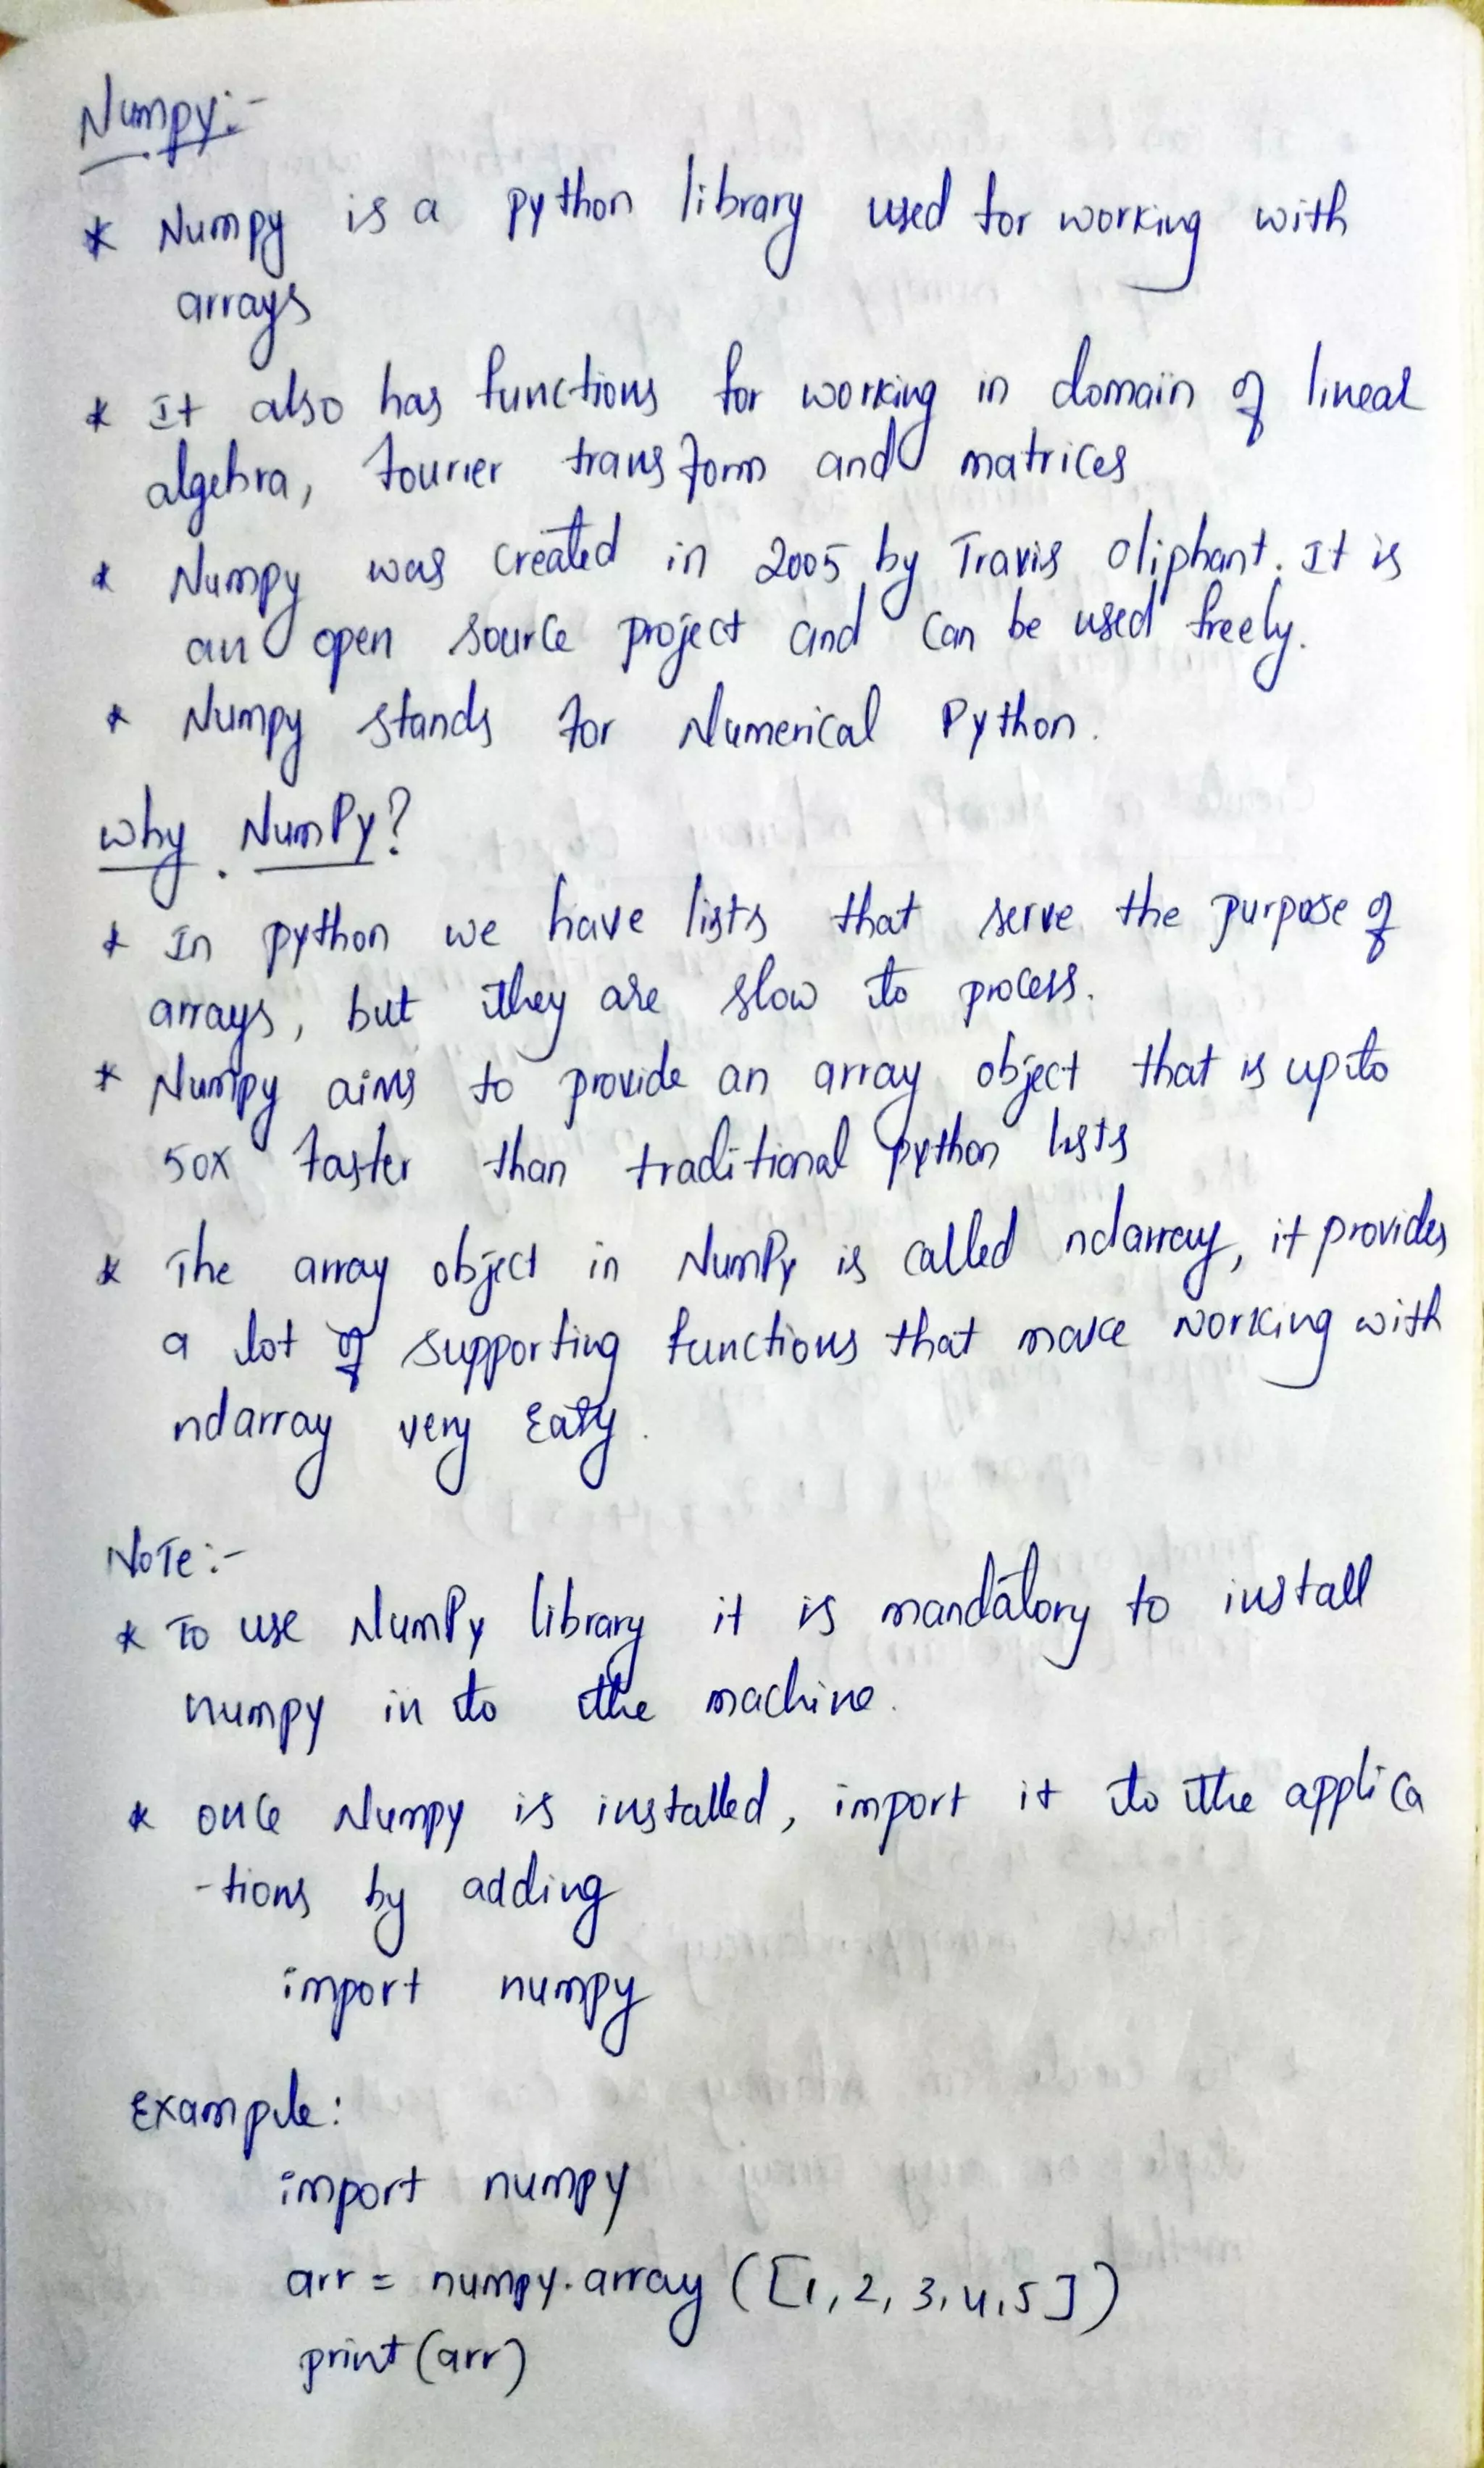 Numpy:-
* Numpy is a python library used for working with
arrays
* It also has functions for working in domain of linear
algebra, fourier transform and matrices
* Numpy was created in 2005 by Travis Oliphant. It is
an open source project and can be used freely.
* Numpy stands for Numerical Python.
why NumPy?
* In python we have lists that serve the purpose of
arrays, but they are slow to process.
* Numpy aims to provide an array object that is upto
50x faster than traditional python lists
* The array object in NumPy is called ndarray, it provides
a lot of supporting functions that make working with
ndarray very Easy.
NoTe:-
* To use NumPy library it is mandatory to install
numpy in to the machine.
* once Numpy is installed, import it to the applica
-tions by adding
import numpy
Example:
import numpy
arr = numpy.array ([1, 2, 3, 4, 5])
print (arr)